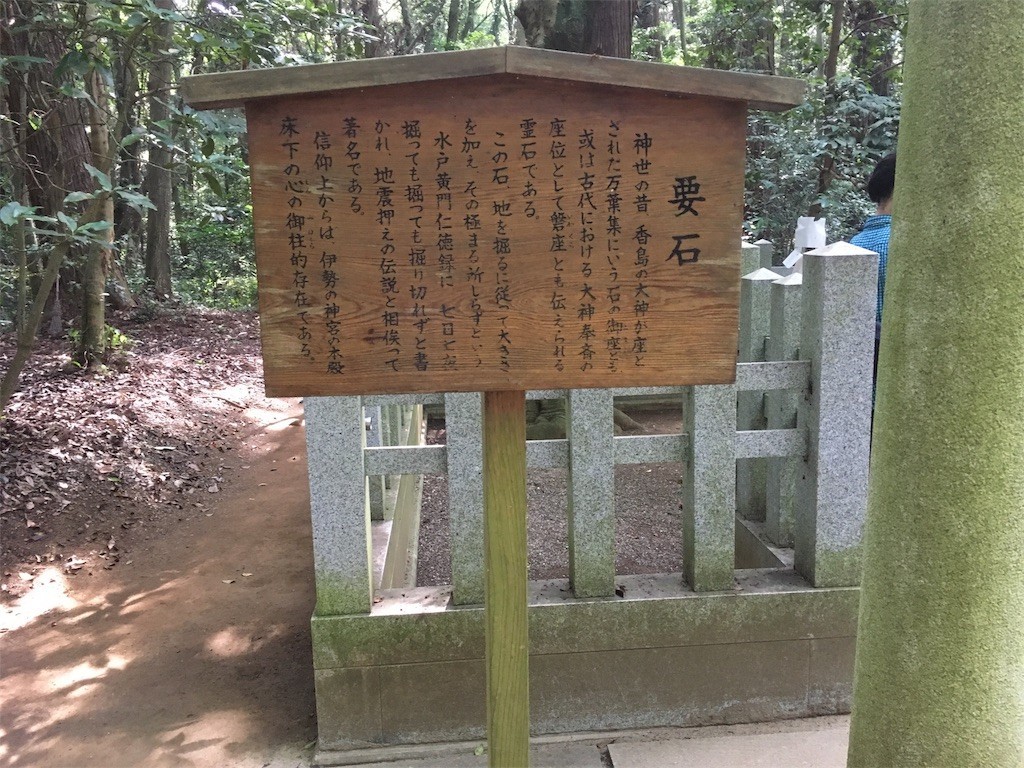 要石
神世の昔 香島の大神が座と
された万葉集にいう石の御座とも
或は古代における大神奉斎の
座位として磐座とも伝えられる
いわくら
霊石である。
この石、地を掘るに従って大きさ
を加え その極まる所しらずという
水戸黄門仁徳録に 七日七夜
掘っても掘っても掘り切れずと書
かれ、地震押えの伝説と相俟って
著名である。
信仰上からは 伊勢の神宮の本殿
床下の心の御柱的存在である。
みはしら